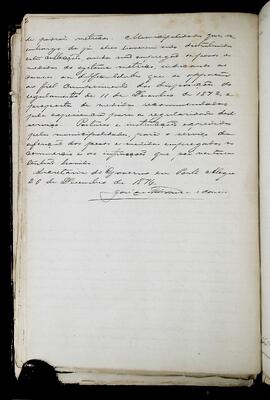 de padrão metrico. A Municipalidade que, se
embargo de já ali haverem sido distribuidos
esta collecção, ainda não empregão os pesos e
medidas do systema metrico indicando as
causas ou difficuldades que se oppoem
ao fiel cumprimento das disposições do
regulamento de 11 de Dezembro de 1872, e
proposta de medidas recommendadas
pela experiencia para a regularidade deste
serviço. Posturas e instrucções expedidas
pelas municipalidades para o serviço da
aferição dos pesos e medidas empregados no
commercio e as infracções que por ventura
tenhão havido.
Secretaria do Governo em Porto Alegre
20 de Dezembro de 1876.